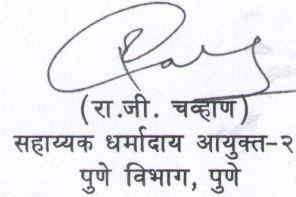 (रा.जी. चव्हाण)
सहाय्यक धर्मादाय आयुक्त-२
पुणे विभाग, पुणे